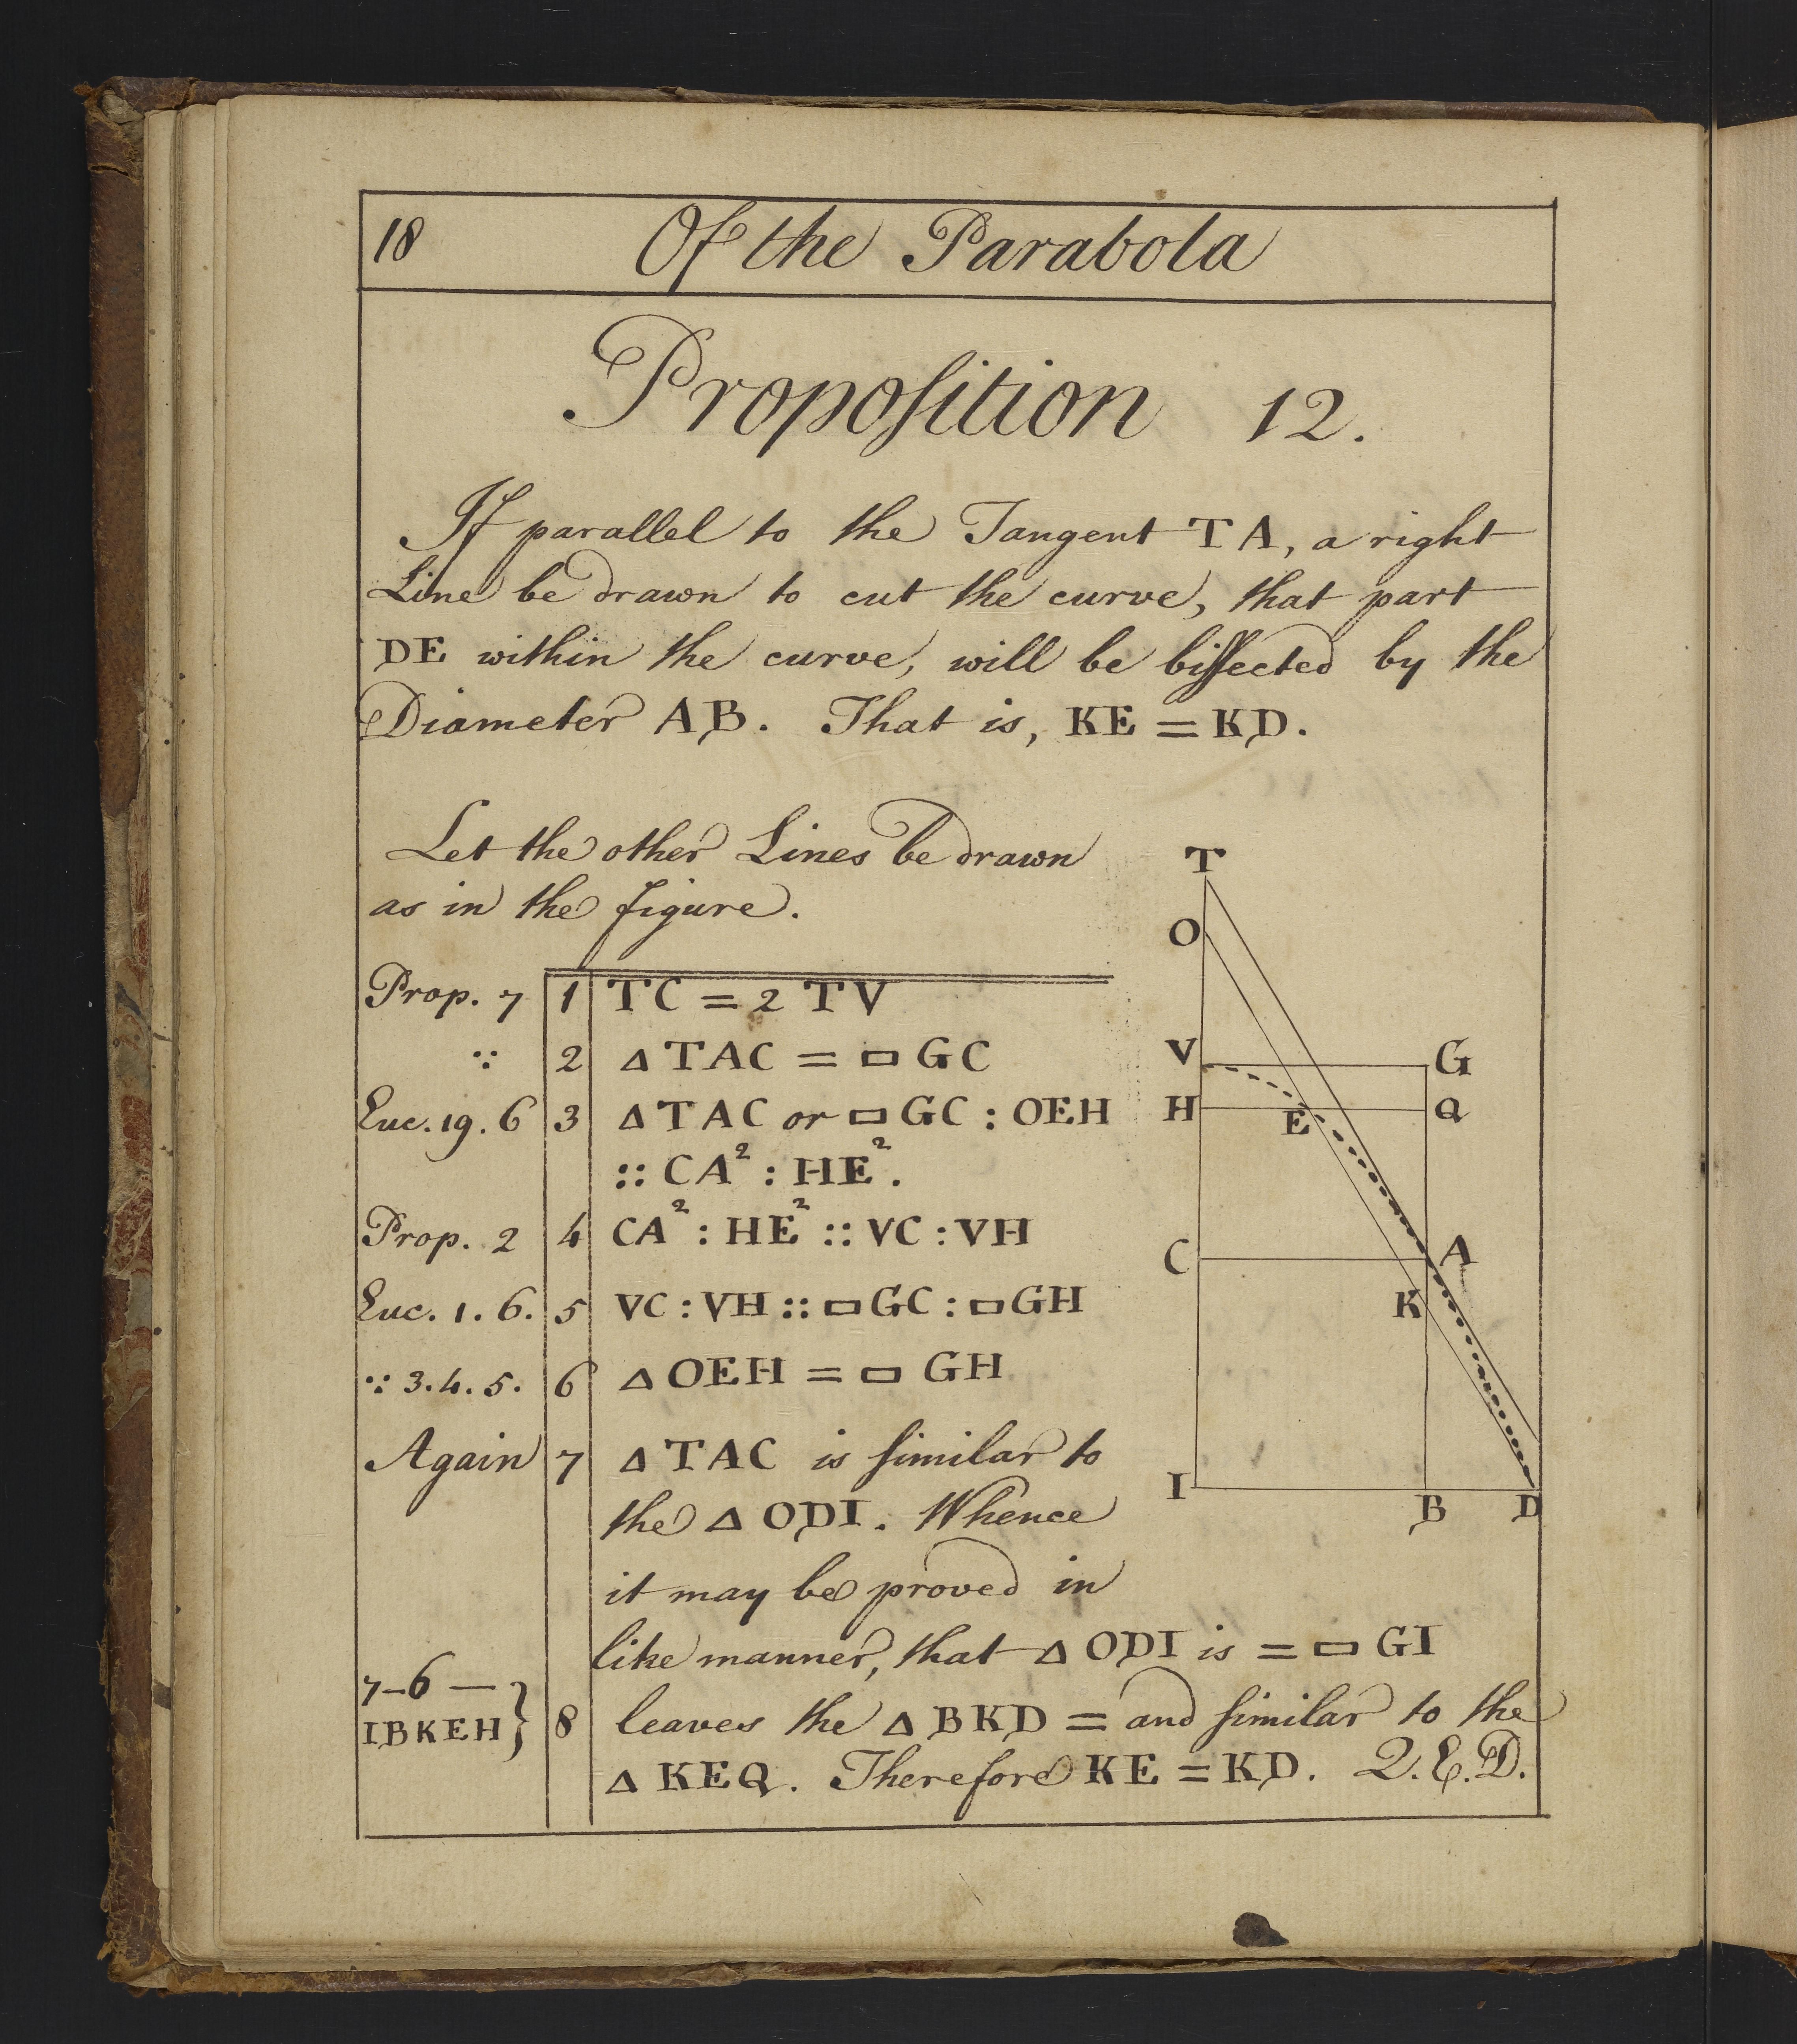 18 Of the Parabola
Propoſition 12.
If parallel to the Tangent TA, a right
Line be drawn to cut the curve, that part
DE within the curve, will be biſsected by the
Diameter AB. That is, KE = KD.
Let the other Lines be drawn
as in the figure.
Prop. 7 1 TC = 2 TV
∵ 2 △ TAC = ▭ GC
Euc. 19. 6 3 △ TAC or ▭ GC : OEH
:: CA² : HE².
Prop. 2 4 CA² : HE² :: VC : VH
Euc. 1. 6. 5 VC : VH :: ▭ GC : ▭ GH
∵ 3. 4. 5. 6 △ OEH = ▭ GH
Again 7 △ TAC is ſimilar to
the △ ODI. Whence
it may be proved in
like manner, that △ ODI is = ▭ GI
7–6 —
IBKEH } 8 leaves the △ BKD = and ſimilar to the
△ KEQ. Therefore KE = KD. Q.E.D.
T
O
V G
H E Q
C A
K
I B D